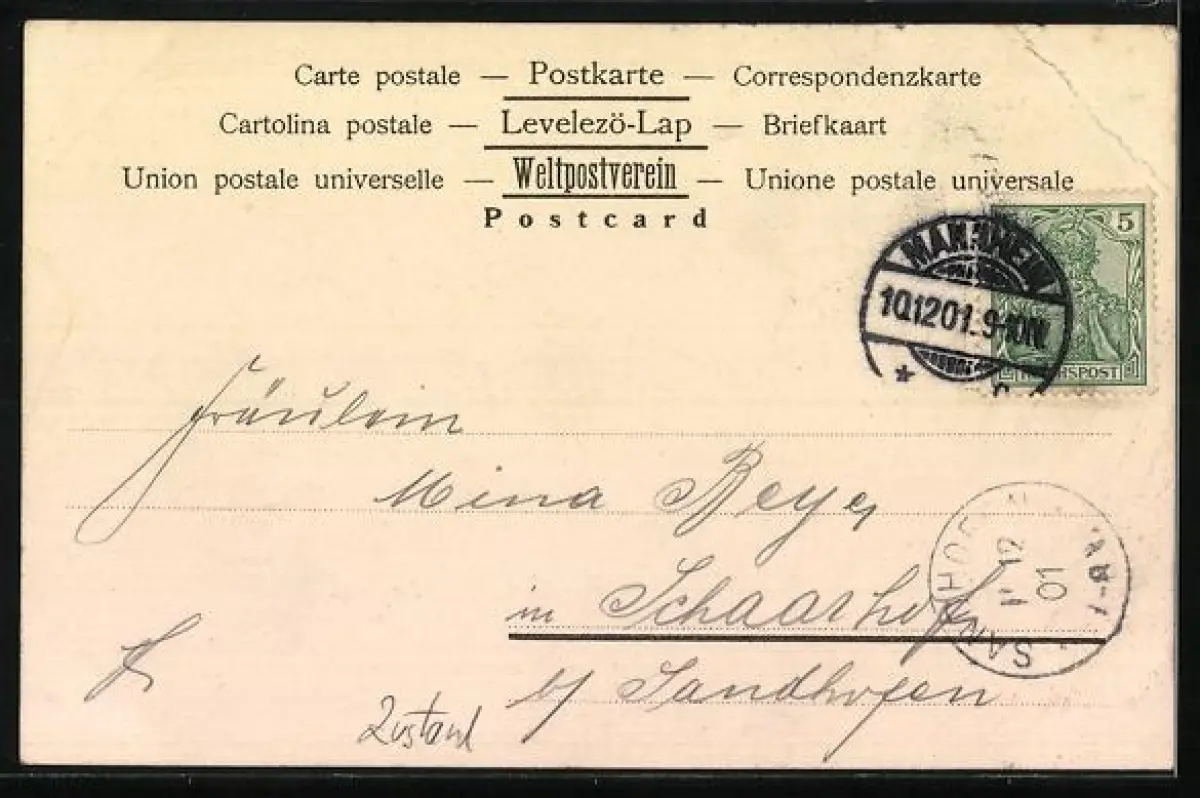 Carte postale — Postkarte — Correspondenzkarte
Cartolina postale — Levelezö-Lap — Briefkaart
Union postale universelle — Weltpostverein — Unione postale universale
Postcard
5
MANNHEIM
10.12.01. 9-10N.
REICHSPOST
Fräulein
Mina Beyer
in Schaarhof
b/ Sandhofen
Zustand
SANDHOFEN
12
01